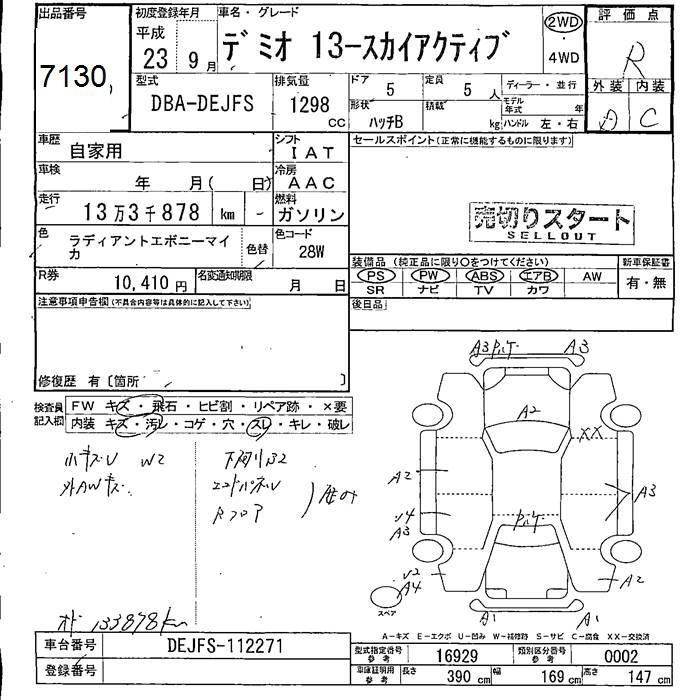 出品番号
7130
初度登録年月
平成
23年 9月
車名・グレード
デミオ 13-スカイアクティブ
2WD
・
4WD
評価点
R
外装 内装
C
型式
DBA-DEJFS
排気量
1298
CC
ドア
5
定員
5人
形状
ハッチB
積載
kg
ディーラー・並行
モデル年式 年
ハンドル 左・右
車歴
自家用
シフト
IAT
セールスポイント(正常に機能するものに限ります)
車検
年 月( 日)
冷房
AAC
走行
13万3千878 km
燃料
ガソリン
売切りスタート
SELLOUT
色
ラディアントエボニーマイカ
色替
色コード
28W
R券
10,410円
名変通知期限
月 日
装備品(純正品に限り○をつけてください)
PS PW ABS エアB AW
SR ナビ TV カワ
新車保証書
有・無
注意事項申告欄(不具合内容等は具体的に記入して下さい)
後日品
修復歴 有〔箇所 〕
検査員記入欄
FW キズ・飛石・ヒビ割・リペア跡・×要
内装 キズ・汚レ・コゲ・穴・スレ・キレ・破レ
小キズU W2
外AWキズ
エンドパネルU
Rフロア
オド 133878km
A3 A3
A2
XX
A2
A3
A3
A4
A2
A1 A1
スペア
A-キズ E-エクボ U-凹み W-補修跡 S-サビ C-腐食 XX-交換済
車台番号
DEJFS-112271
登録番号
型式指定番号 参考
16929
類別区分番号 参考
0002
車庫証明用 参考
長さ
390 cm
幅
169 cm
高さ
147 cm